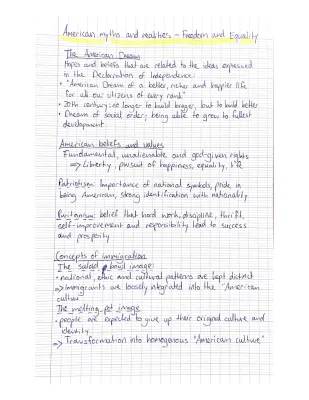 American myths and realities – Freedom and Equality
The American Dream
Hopes and beliefs that are related to the ideas expressed
in the Declaration of Independence:
• "American Dream of a better, richer and happier life
for all our citizens of every rank"
• 20th century: no longer to build bigger, but to build better
• Dream of social order; being able to grow to fullest
development
American beliefs and values
Fundamental, unalienable and god-given rights
=> Liberty, pursuit of happiness, equality, life
Patriotism: Importance of national symbols, pride in
being American, strong identification with nationality
Puritanism: belief that hard work, discipline, thrift,
self-improvement and responsibility lead to success
and prosperity
Concepts of immigration
The salad bowl image:
• national, ethnic and cultural patterns are kept distinct
=> immigrants are loosely integrated into the "American
culture"
The melting pot image
• people are expected to give up their original culture and
identity
=> Transformation into homogenous "American culture"